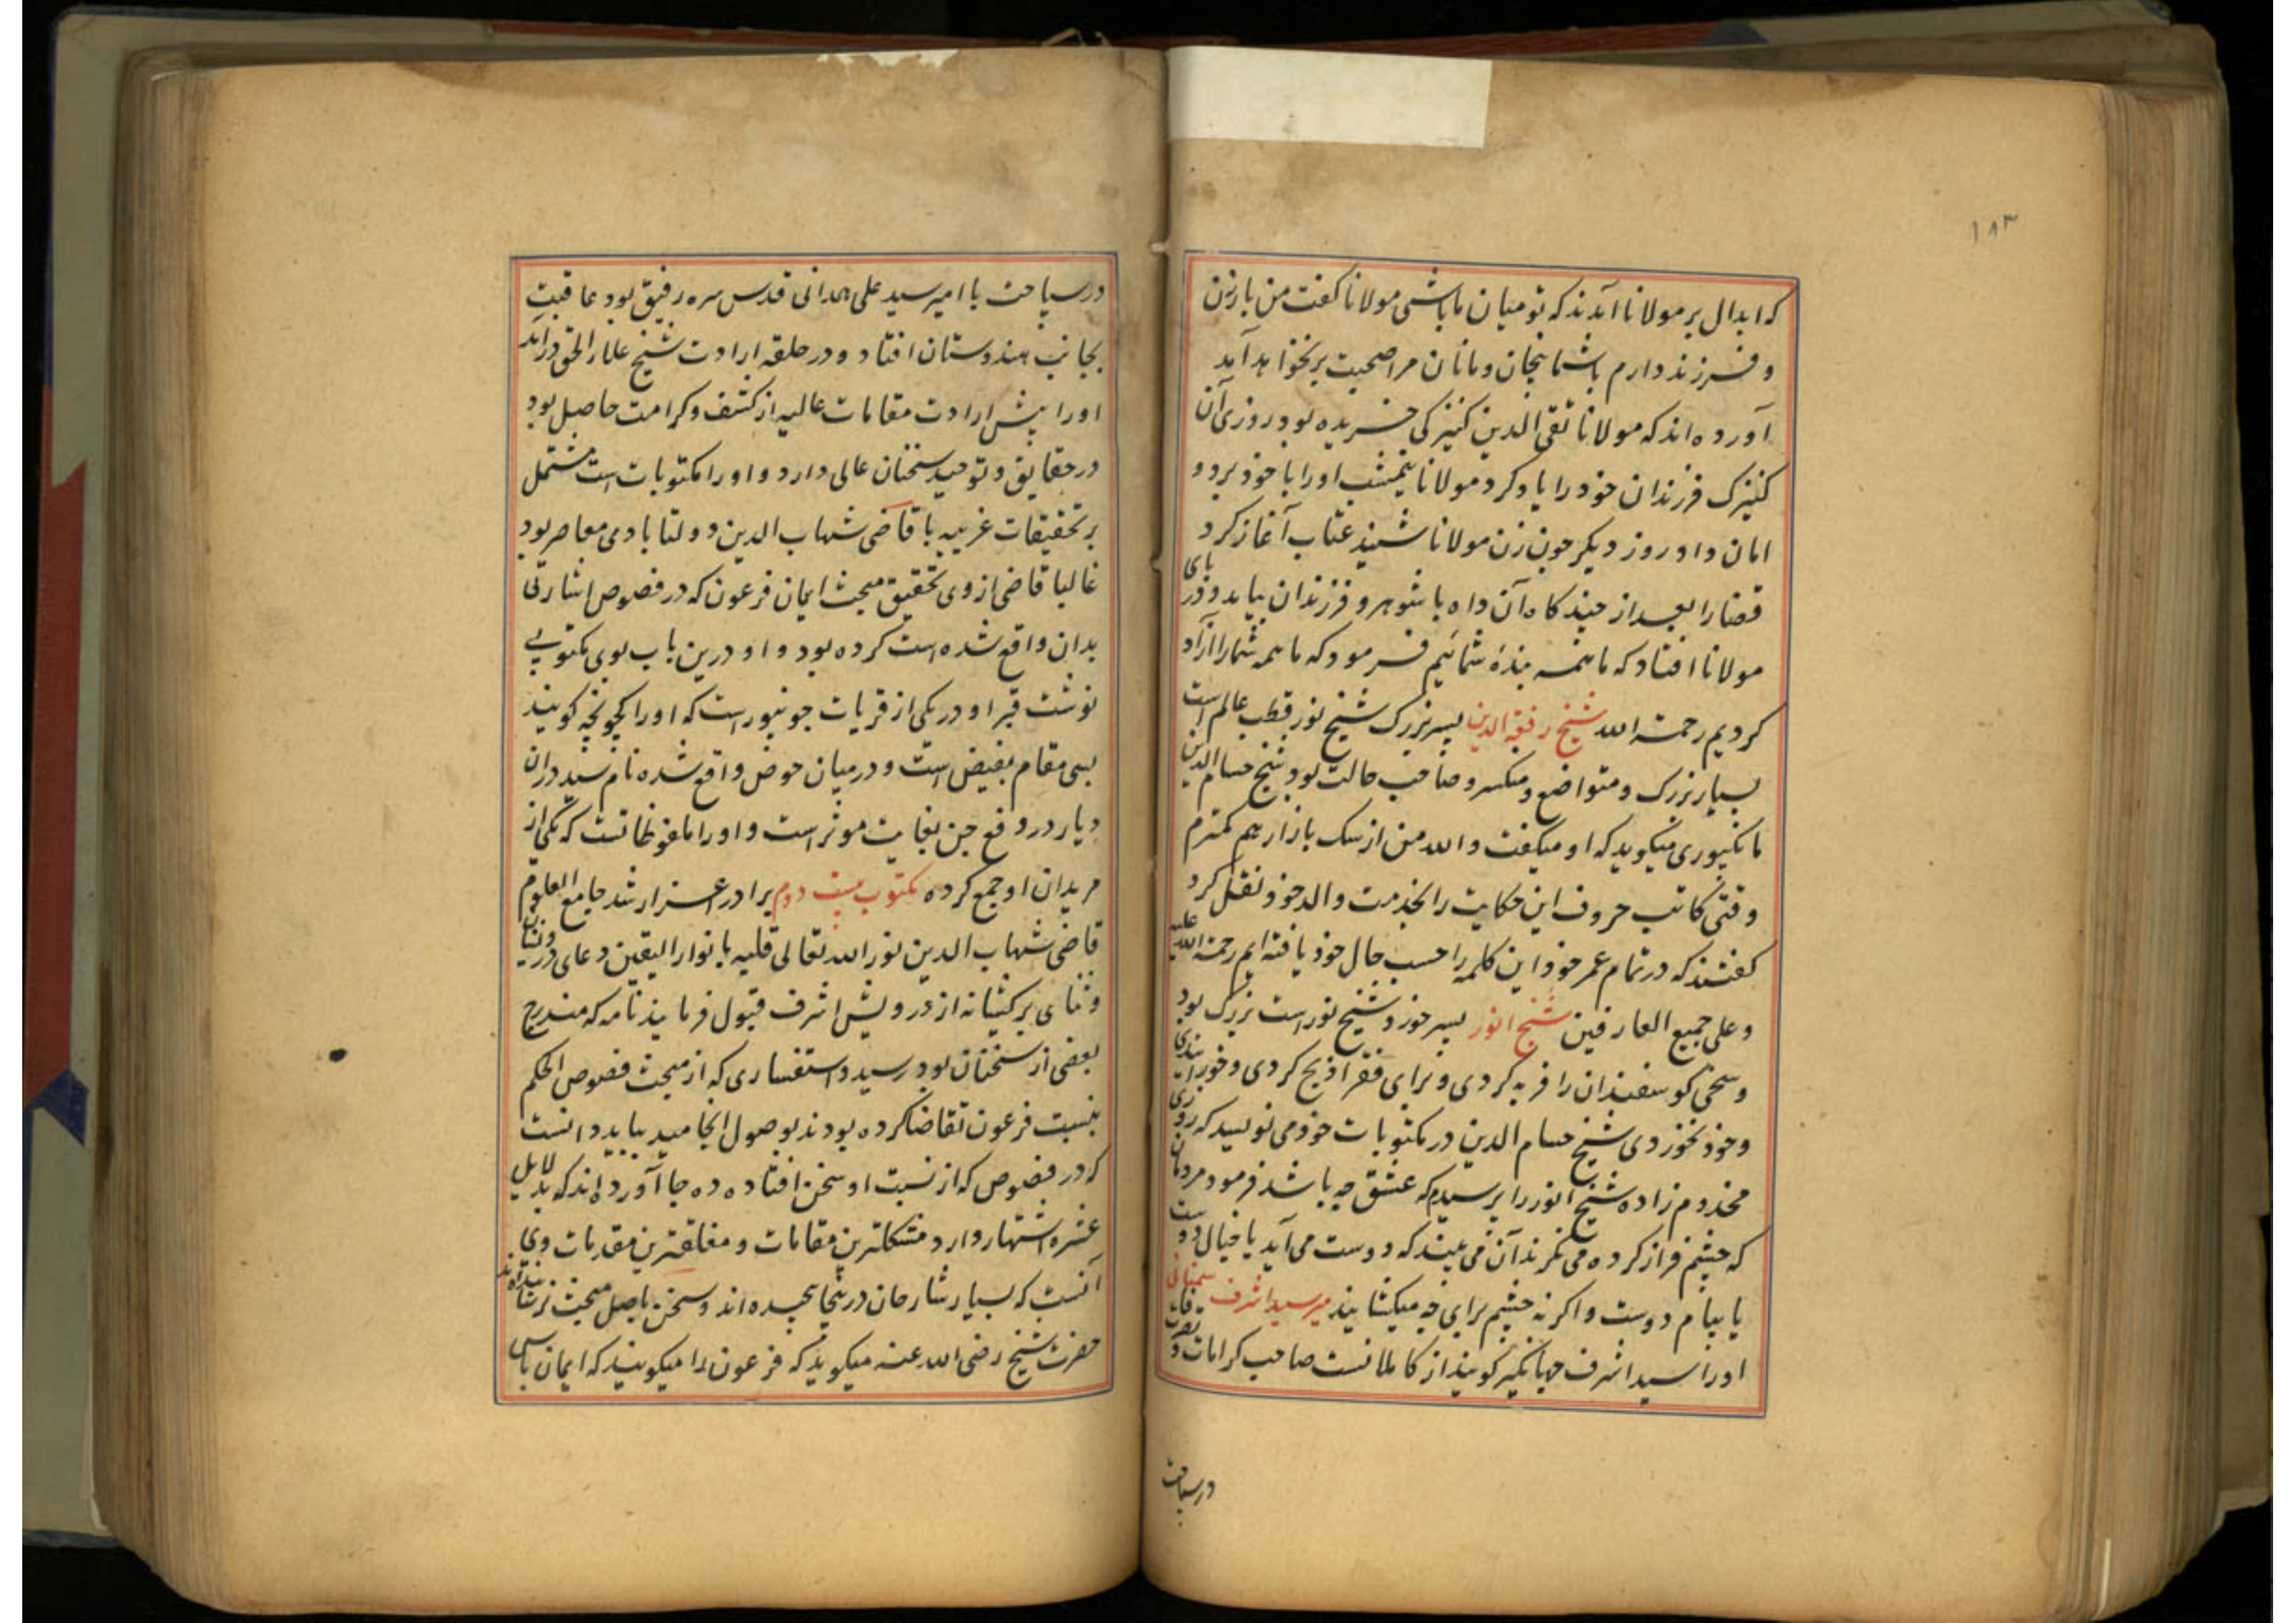 ۱۸۳
که ابدال بر مولانا آمدند که تو میان ما باشی مولانا گفت من بار زن
و فرزند دارم با شما بخان و مانان مرا صحبت بر نخواهد آمد
آورده اند که مولانا تقی الدین کنیزکی خریده بود روزی آن
کنیزک فرزندان خود را یاد کرد مولانا نیمشب او را با خود برد و
امان داد روز دیگر چون زن مولانا شنید عتاب آغاز کرد
قضا را بعد از چند گاه آن داه با شوهر و فرزندان بیامد و در پای
مولانا افتاد که ما همه بندۀ شمائیم فرمود که ما همه شما را آزاد
کردیم رحمة الله شیخ رفقة الدین پسر بزرک شیخ نور قطب عالم است
بسیار بزرک و متواضع و منکسر و صاحب حالت بود شیخ حسام الدین
مانکپوری میگوید که او میگفت والله من از سک بازار هم کمترم
وقتی کاتب حروف این حکایت را بخدمت والد خود نقل کرد
گفتند که در تمام عمر خود این کلمه را حسب حال خود یافته ایم رحمة الله علیه
و علی جمیع العارفین شیخ انور پسر خورد شیخ نور است بزرک بود
و سخی گوسفندان را فربه کردی و برای فقرا ذبح کردی و خورانیدی
و خود نخوردی شیخ حسام الدین در مکتوبات خود می نویسد که روزی
مخدوم زاده شیخ انور را پرسیدم که عشق چه باشد فرمود مردمان
که چشم فراز کرده می نگرند آن می بینند که دوست می آید یا خیال دوست
یا پیام دوست و اگر نه چشم برای چه میکشایند میر سید اشرف سمنانی
او را سید اشرف جهانگیر گویند از کاملانست صاحب کرامات و تصرفات
در سیاحت
در سیاحت با امیر سید علی همدانی قدس سره رفیق بود عاقبت
بجانب هندوستان افتاد و در حلقه ارادت شیخ علاء الحق درآمد
او را پیش ارادت مقامات عالیه از کشف و کرامت حاصل بود
در حقایق و توحید سخنان عالی دارد و او را مکتوبات است مشتمل
بر تحقیقات غریبه با قاضی شهاب الدین دولتابادی معاصر بود
غالبا قاضی از وی تحقیق مبحث ایمان فرعون که در فصوص اشارتی
بدان واقع شده است کرده بود و او درین باب بوی مکتوبی
نوشت قبر او در یکی از قریات جونپور است که او را کچوچه گویند
بسی مقام بفیض است و در میان حوض واقع شده نام سید در آن
دیار در دفع جن بغایت موثر است و او را ملفوظاتست که یکی از
مریدان او جمع کرده مکتوب بیست دوم برادر اعز ارشد جامع العلوم
قاضی شهاب الدین نور الله تعالی قلبه بانوار الیقین دعای درویشانه
و ثنای پرکیشانه از درویش اشرف قبول فرمایند نامه که مندرج
بعضی از سخنان بود رسید و استفساری که از مبحث فصوص الحکم
بنسبت فرعون تقاضا کرده بودند بوصول انجامید بباید دانست
که در فصوص که از نسبت او سخن افتاده ده جا آورده اند که بدلایل
عشره اشتهار دارد مشکلترین مقامات و مغلقترین مقدمات وی
آنست که بسیار شارحان درینجا پیچیده اند و سخن باصل مبحث نرسانیده اند
حضرت شیخ رضی الله عنه میگوید که فرعون را میگویند که ایمان باس